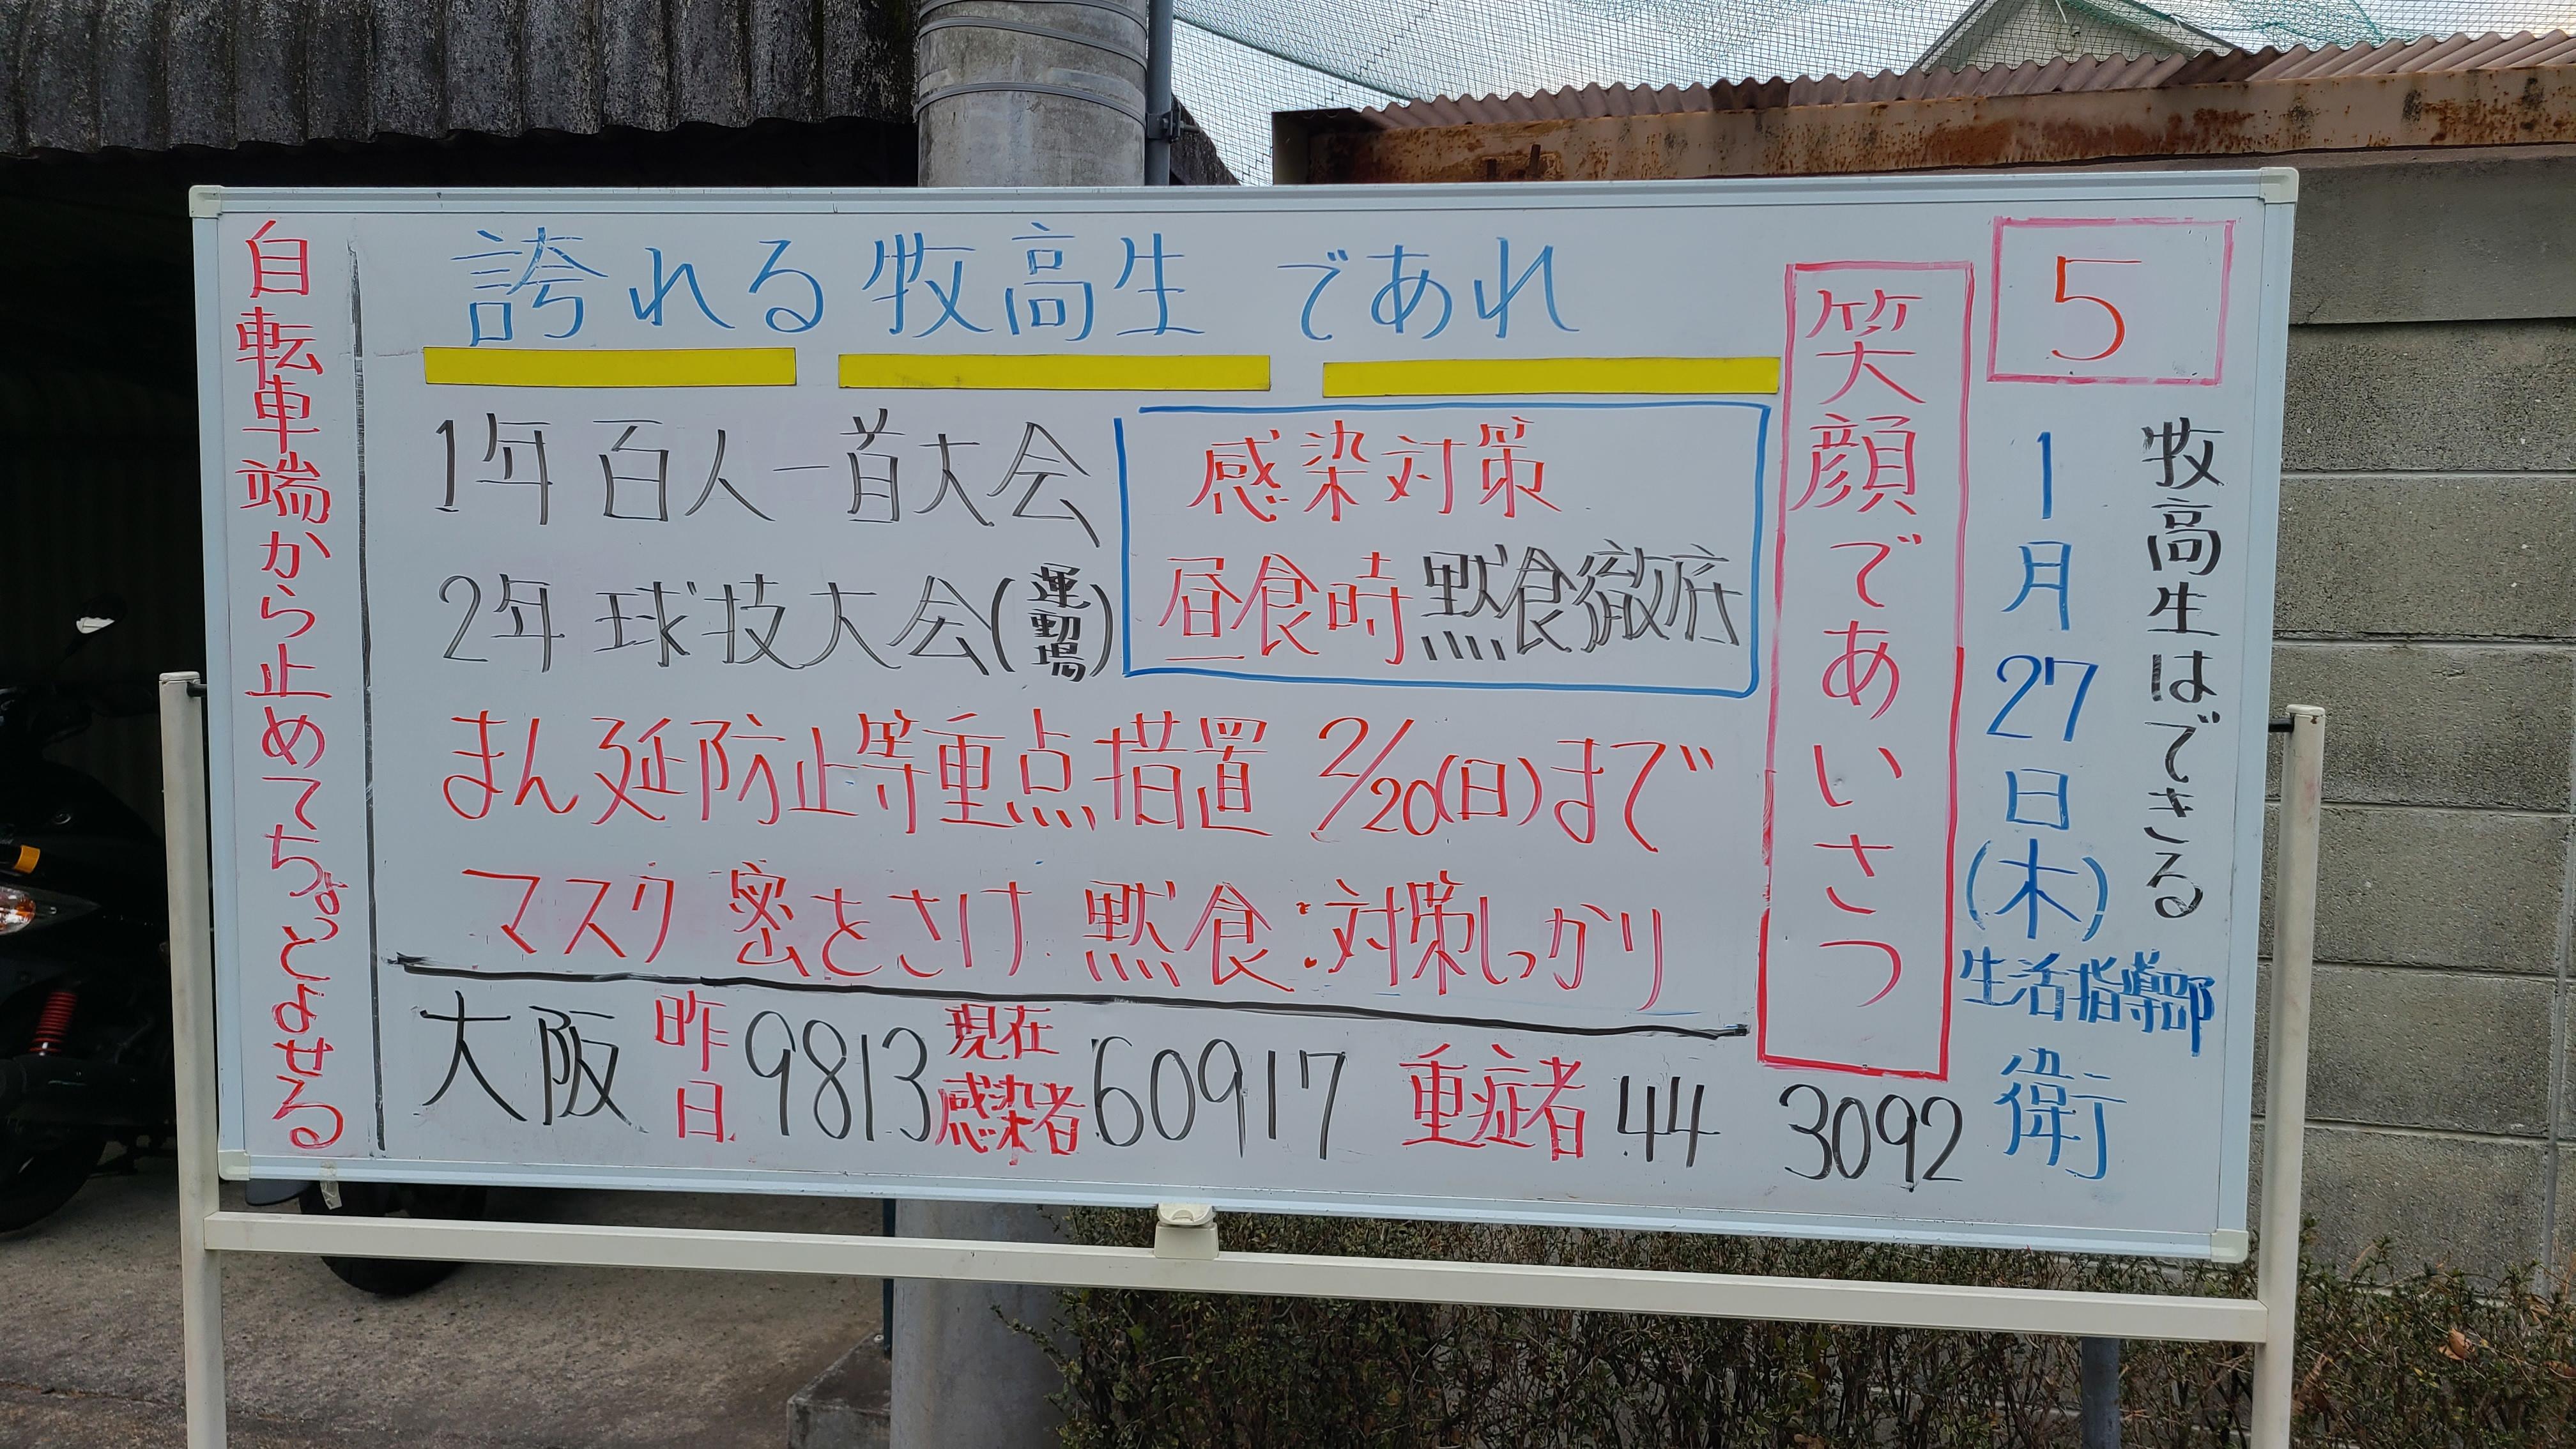 5
牧高生はできる
1月27日(木)
生活指導部
衛
笑顔であいさつ
誇れる牧高生であれ
1年 百人一首大会
2年 球技大会(運動場)
感染対策
昼食時黙食徹底
まん延防止等重点措置 2/20(日)まで
マスク 密をさけ 黙食:対策しっかり
大阪 昨日 9813 現在感染者 60917 重症者 44 3092
自転車端から止めてちょっとよせる